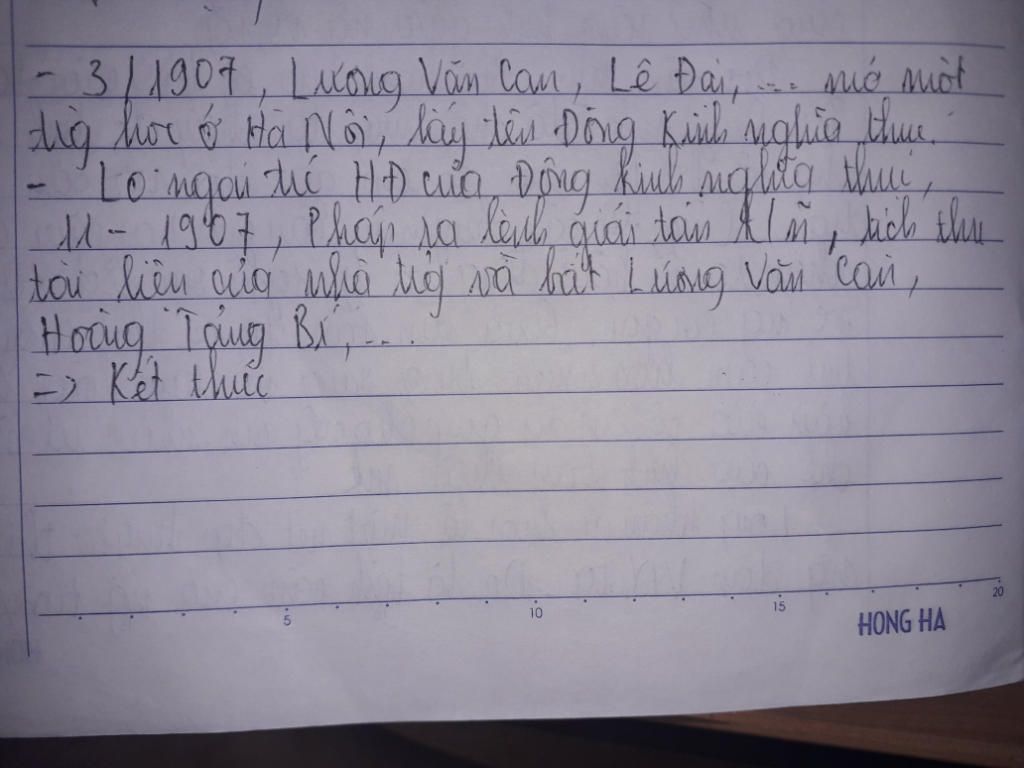 - 3/1907, Lương Văn Can, Lê Đại, .... mở một
trg học ở Hà Nội, lấy tên Đông Kinh nghĩa thục.
- Lo ngại trc HĐ của Đông Kinh nghĩa thục,
11 - 1907, Pháp ra lệnh giải tán, tịch thu
tài liệu của nhà trg và bắt Lương Văn Can,
Hoàng Tăng Bí, ....
=> Kết thúc
5 10 15 20
HONG HA